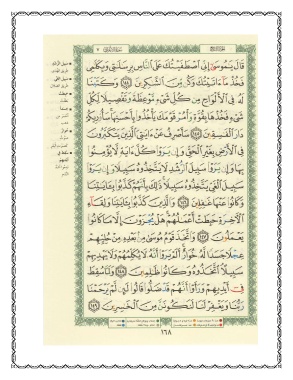 قَالَ يَٰمُوسَىٰٓ إِنِّى ٱصْطَفَيْتُكَ عَلَى ٱلنَّاسِ بِرِسَٰلَٰتِى وَبِكَلَٰمِى
فَخُذْ مَآ ءَاتَيْتُكَ وَكُن مِّنَ ٱلشَّٰكِرِينَ ١٤٤ وَكَتَبْنَا
لَهُۥ فِى ٱلْأَلْوَاحِ مِن كُلِّ شَىْءٍ مَّوْعِظَةً وَتَفْصِيلًا لِّكُلِّ
شَىْءٍ فَخُذْهَا بِقُوَّةٍ وَأْمُرْ قَوْمَكَ يَأْخُذُوا۟ بِأَحْسَنِهَا سَأُو۟رِيكُمْ
دَارَ ٱلْفَٰسِقِينَ ١٤٥ سَأَصْرِفُ عَنْ ءَايَٰتِىَ ٱلَّذِينَ يَتَكَبَّرُونَ
فِى ٱلْأَرْضِ بِغَيْرِ ٱلْحَقِّ وَإِن يَرَوْا۟ كُلَّ ءَايَةٍ لَّا يُؤْمِنُوا۟
بِهَا وَإِن يَرَوْا۟ سَبِيلَ ٱلرُّشْدِ لَا يَتَّخِذُوهُ سَبِيلًا وَإِن يَرَوْا۟
سَبِيلَ ٱلْغَىِّ يَتَّخِذُوهُ سَبِيلًا ذَٰلِكَ بِأَنَّهُمْ كَذَّبُوا۟ بِـَٔايَٰتِنَا
وَكَانُوا۟ عَنْهَا غَٰفِلِينَ ١٤٦ وَٱلَّذِينَ كَذَّبُوا۟ بِـَٔايَٰتِنَا وَلِقَآءِ
ٱلْـَٔاخِرَةِ حَبِطَتْ أَعْمَٰلُهُمْ هَلْ يُجْزَوْنَ إِلَّا مَا كَانُوا۟
يَعْمَلُونَ ١٤٧ وَٱتَّخَذَ قَوْمُ مُوسَىٰ مِنۢ بَعْدِهِۦ مِنْ حُلِيِّهِمْ
عِجْلًا جَسَدًا لَّهُۥ خُوَارٌ أَلَمْ يَرَوْا۟ أَنَّهُۥ لَا يُكَلِّمُهُمْ وَلَا يَهْدِيهِمْ
سَبِيلًا ٱتَّخَذُوهُ وَكَانُوا۟ ظَٰلِمِينَ ١٤٨ وَلَمَّا سُقِطَ
فِىٓ أَيْدِيهِمْ وَرَأَوْا۟ أَنَّهُمْ قَدْ ضَلُّوا۟ قَالُوا۟ لَئِن لَّمْ يَرْحَمْنَا
رَبُّنَا وَيَغْفِرْ لَنَا لَنَكُونَنَّ مِنَ ٱلْخَٰسِرِينَ ١٤٩
١٦٨